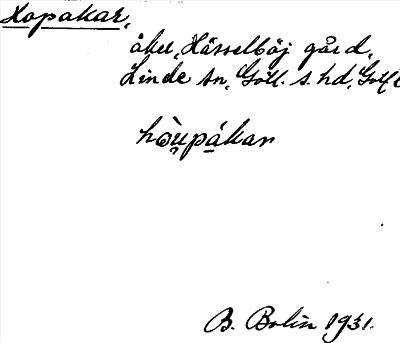 Hopakar,
åker, Hässelböj gård,
Linde sn, Gotl. s. hd, Gotl
hòu̯pákan
B. Bolin 1931.